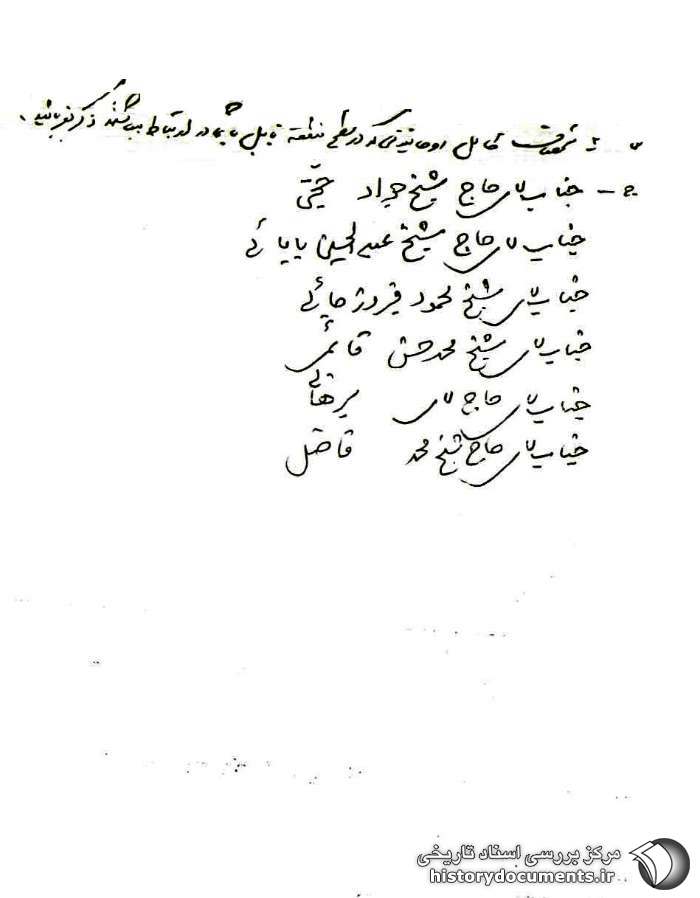 س - مشخصات کامل روحانیونی که در سطح منطقه بابل با شما در ارتباط میباشند ذکر بفرمائید.
ج - جناب آقای حاج شیخ جواد حجتی
جناب آقای حاج شیخ عبدالحسین بابائی
جناب آقای شیخ محمود فیروزجائی
جناب آقای شیخ محمد حسن قائمی
جناب آقای حاج آقای
جناب آقای حاج شیخ محمد فاضل
مرکز بررسی اسناد تاریخی
historydocuments.ir